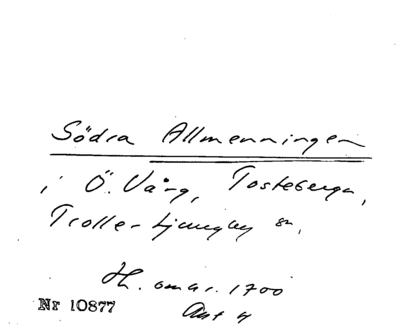 Södra Allmenningen
i Ö. Vång, Tosteberga,
Trolle-Ljungby sn,
H. omkr. 1700
Nr 10877